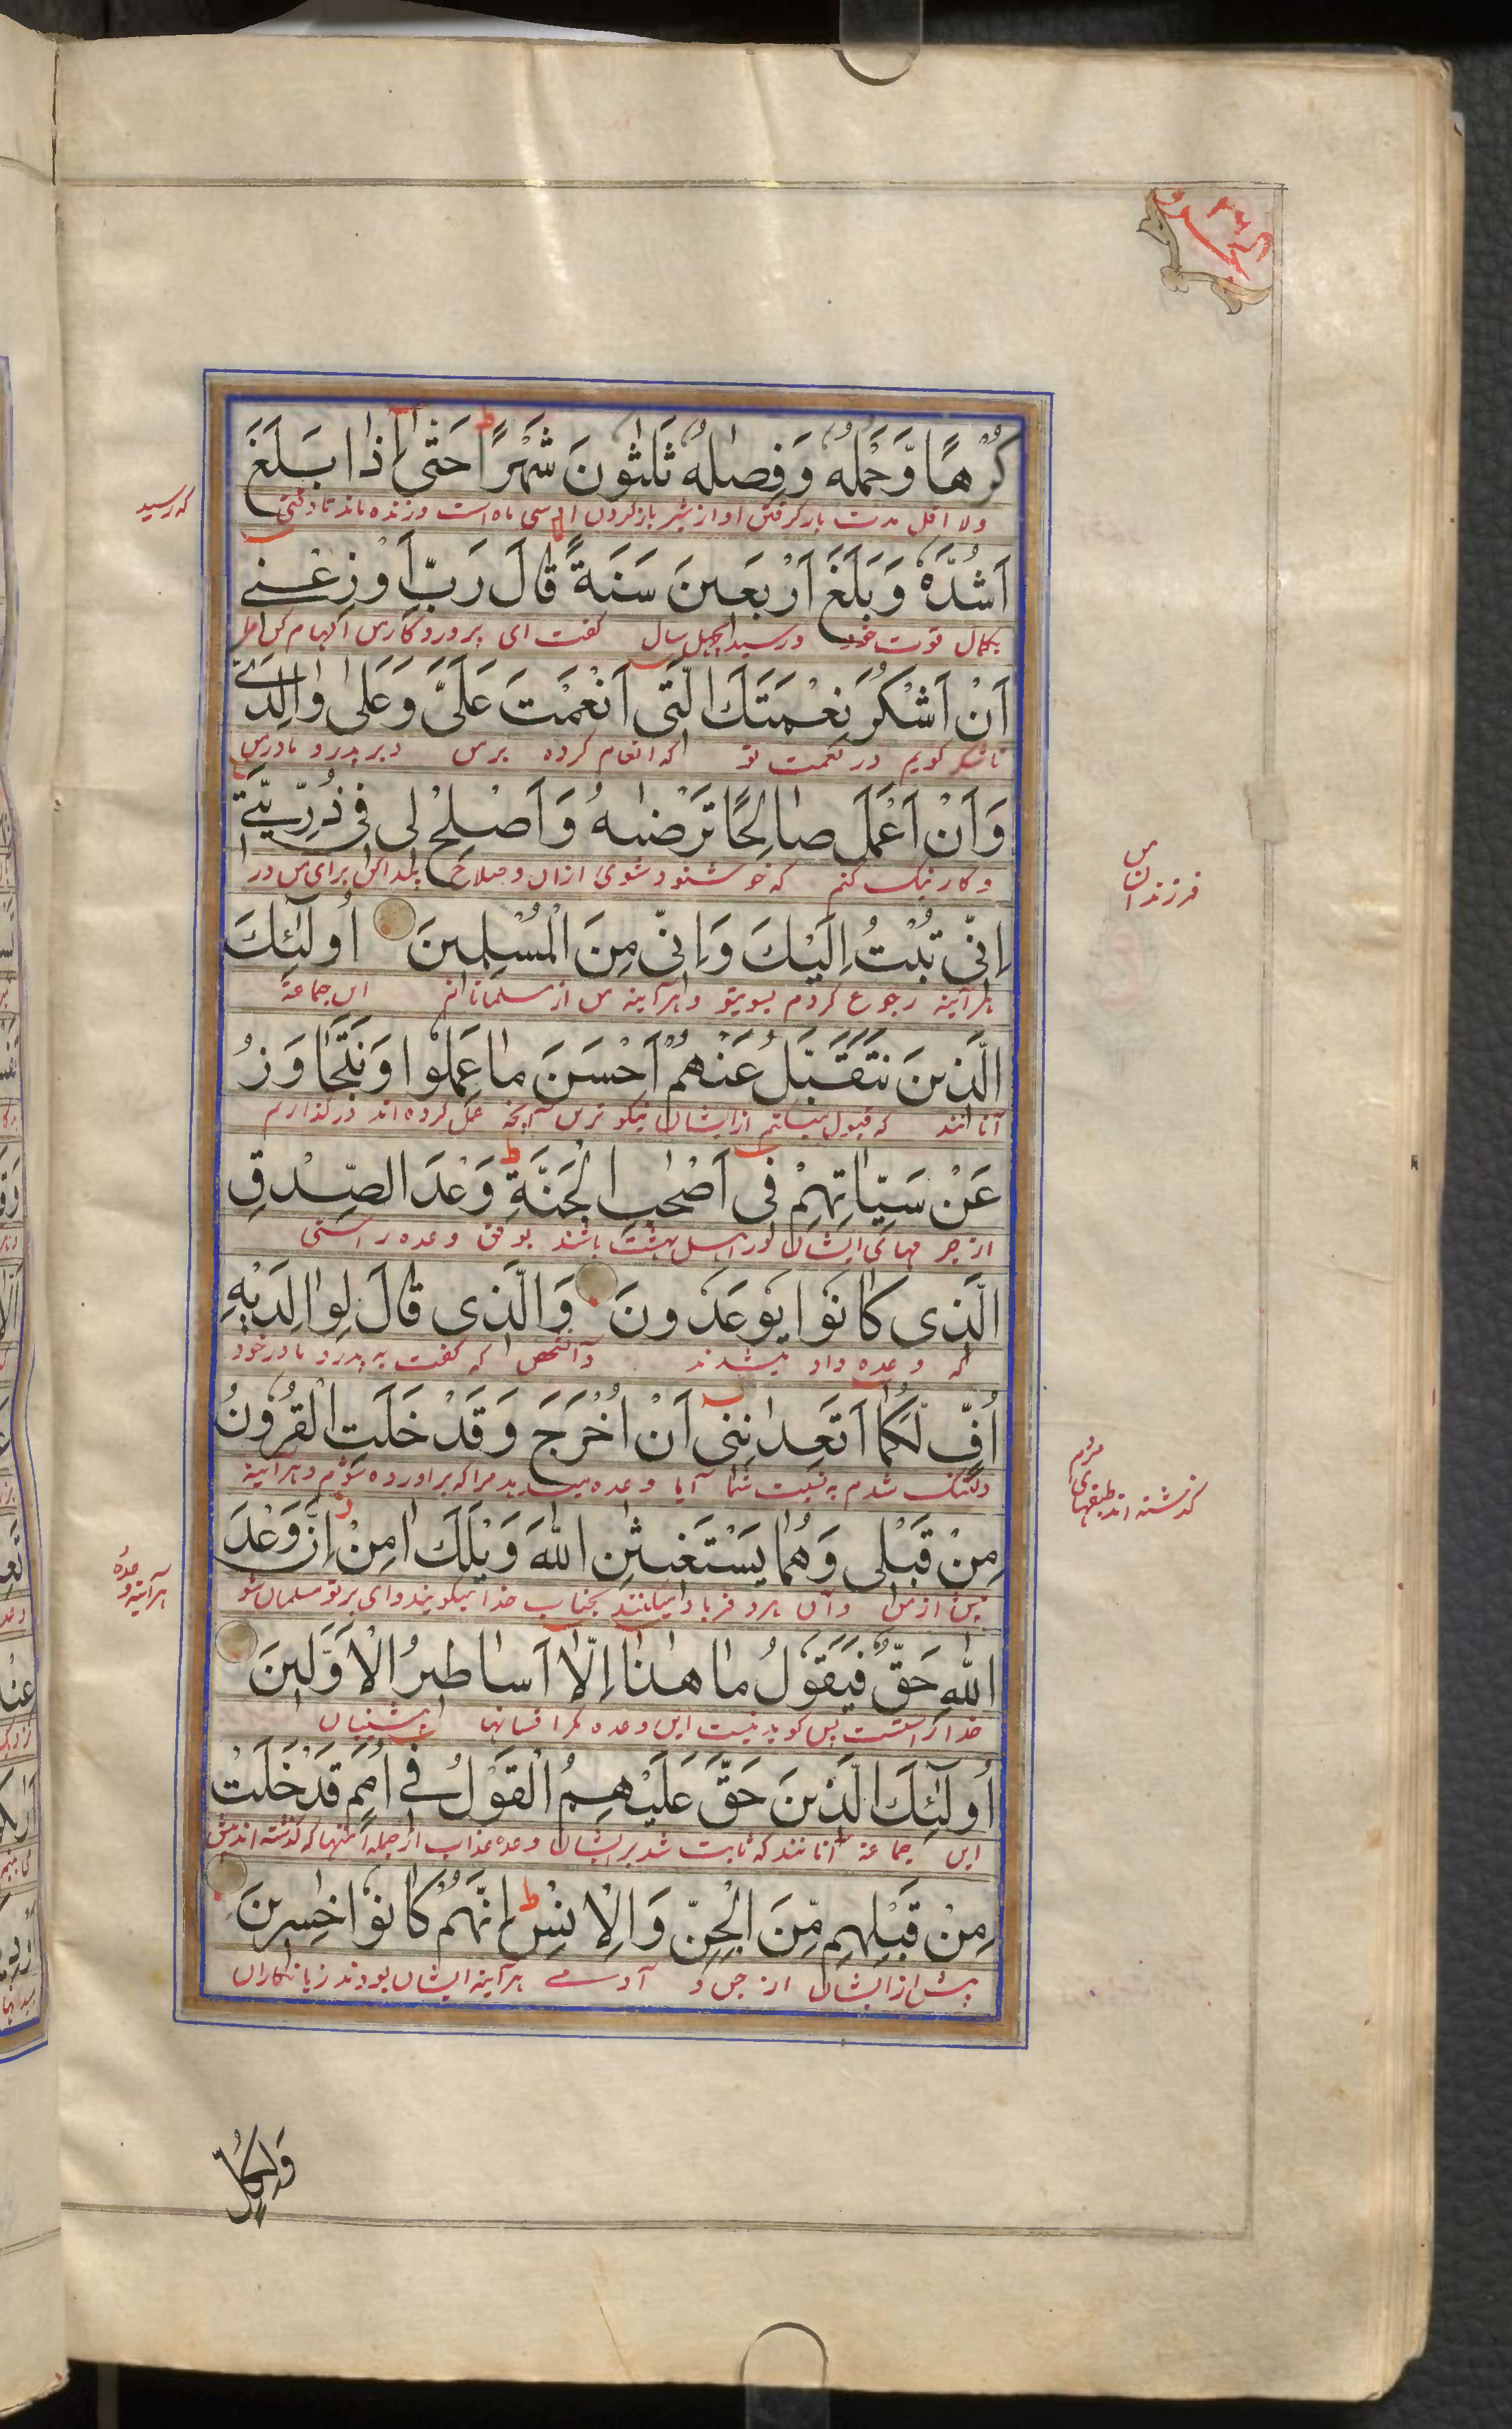 كُرْهًا وَّحَمْلُهٗ وَفِصٰلُهٗ ثَلٰثُونَ شَهْرًا ط حَتّٰى اِذَا بَلَغَ
ولا اقل مدت بار گرفتن او از شیر باز کردن او سی ماه است و زنده ماند تا وقتی
که رسید
اَشُدَّهٗ وَبَلَغَ اَرْبَعِينَ سَنَةً قَالَ رَبِّ اَوْزِعْنِے
بکمال قوت خود و رسید بچهل سال گفت ای پروردگار من الهام کن مرا
اَنْ اَشْكُرَ نِعْمَتَكَ الَّتِى اَنْعَمْتَ عَلَىَّ وَعَلٰى وَالِدَىَّ
تا شکر گویم در نعمت تو که انعام کرده بر من و بر پدر و مادر من
وَاَنْ اَعْمَلَ صَالِحًا تَرْضٰىهُ وَاَصْلِحْ لِى فِى ذُرِّيَّتِے
و کار نیک کنم که خوشنود شوی ازان و صلاح پیدا کن برای من در
فرزندان من
اِنِّى تُبْتُ اِلَيْكَ وَاِنِّى مِنَ الْمُسْلِمِينَ اُولٰٓئِكَ
هر آینه رجوع کردم بسویتو و هر آینه من از مسلمانانم این جماعة
الَّذِينَ نَتَقَبَّلُ عَنْهُمْ اَحْسَنَ مَا عَمِلُوا وَنَتَجَاوَزُ
آنانند که قبول میکنم از ایشان نیکو ترین آنچه عمل کرده اند و در گذاریم
عَنْ سَيِّاٰتِهِمْ فِى اَصْحٰبِ الْجَنَّةِ ط وَعْدَ الصِّدْقِ
از جرمهای ایشان در اهل بهشت باشند بوفق وعده راستی
الَّذِى كَانُوا يُوعَدُونَ وَالَّذِى قَالَ لِوَالِدَيْهِ
که وعده داد میشدند و آنشخص که گفت به پدر و مادر خود
اُفٍّ لَّكُمَا اَتَعِدَانِنِى اَنْ اُخْرَجَ وَقَدْ خَلَتِ الْقُرُونُ
دلتنگ شدم به نسبت شما آیا وعده میدهید مرا که بر آورده شوم و هر آینه
گذشته اند طبقهای مردم
مِنْ قَبْلِى وَهُمَا يَسْتَغِيثٰنِ اللّٰهَ وَيْلَكَ اٰمِنْ اِنَّ وَعْدَ
پیش از من و آن هر دو فریاد میکنند بجناب خدا میگویند وای بر تو مسلمان شو
هر آینه وعدهٔ
اللّٰهِ حَقٌّ فَيَقُولُ مَا هٰذَا اِلَّا اَسَاطِيرُ الْاَوَّلِينَ
خدا راستست پس گوید نیست این وعده مگر افسانها پیشینیان
اُولٰٓئِكَ الَّذِينَ حَقَّ عَلَيْهِمُ الْقَوْلُ فِے اُمَمٍ قَدْ خَلَتْ
این جماعة آنانند که ثابت شد بر ایشان وعده عذاب از جمله امتها که گذشته اند پیش
مِنْ قَبْلِهِمْ مِّنَ الْجِنِّ وَالْاِنْسِ ط اِنَّهُمْ كَانُوا خٰسِرِينَ
پیش از ایشان از جن و آدمے هر آینه ایشان بودند زیانکاران
وَلِكُلٍّ